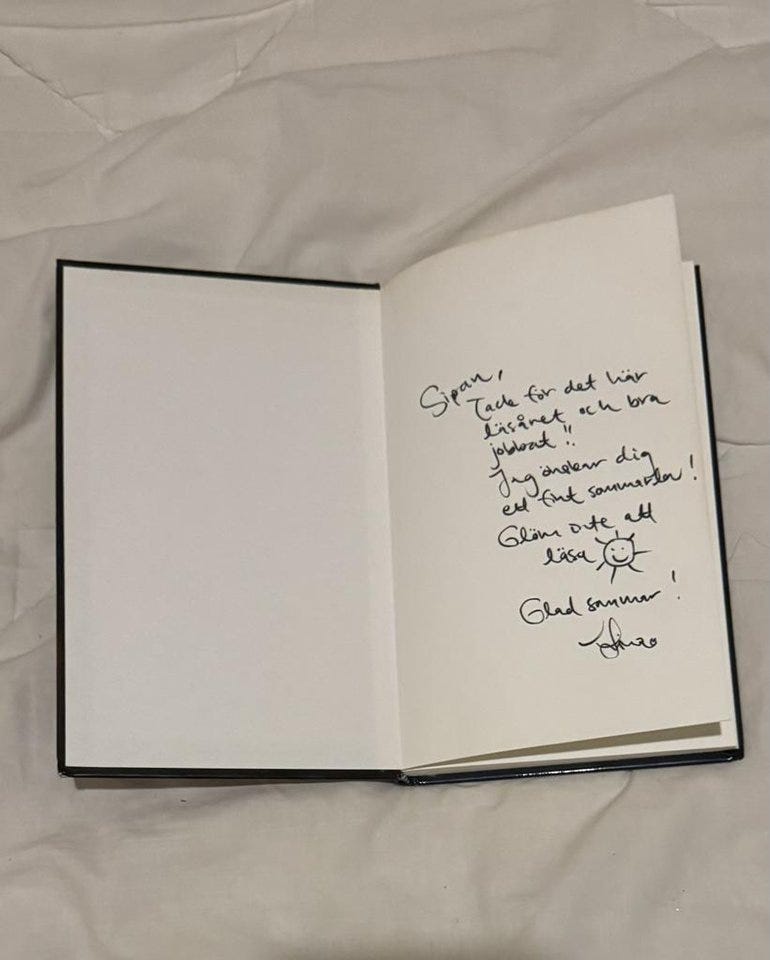 Sipan,
Tack för det här
läsåret och bra
jobbat!!
Jag önskar dig
ett fint sommarlov!
Glöm inte att
läsa
Glad sommar!